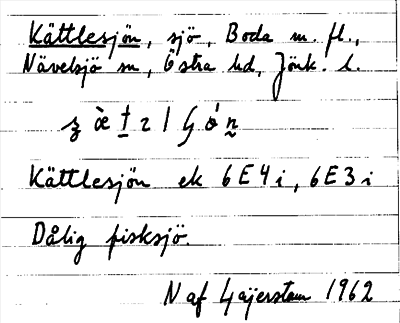 Kättlesjön, sjö, Boda m. fl.,
Nävelsjö sn, Östra hd, Jönk. l.
Kättlesjön ek 6E4i, 6E3i
Dålig fisksjö.
N af Gajerstam 1962